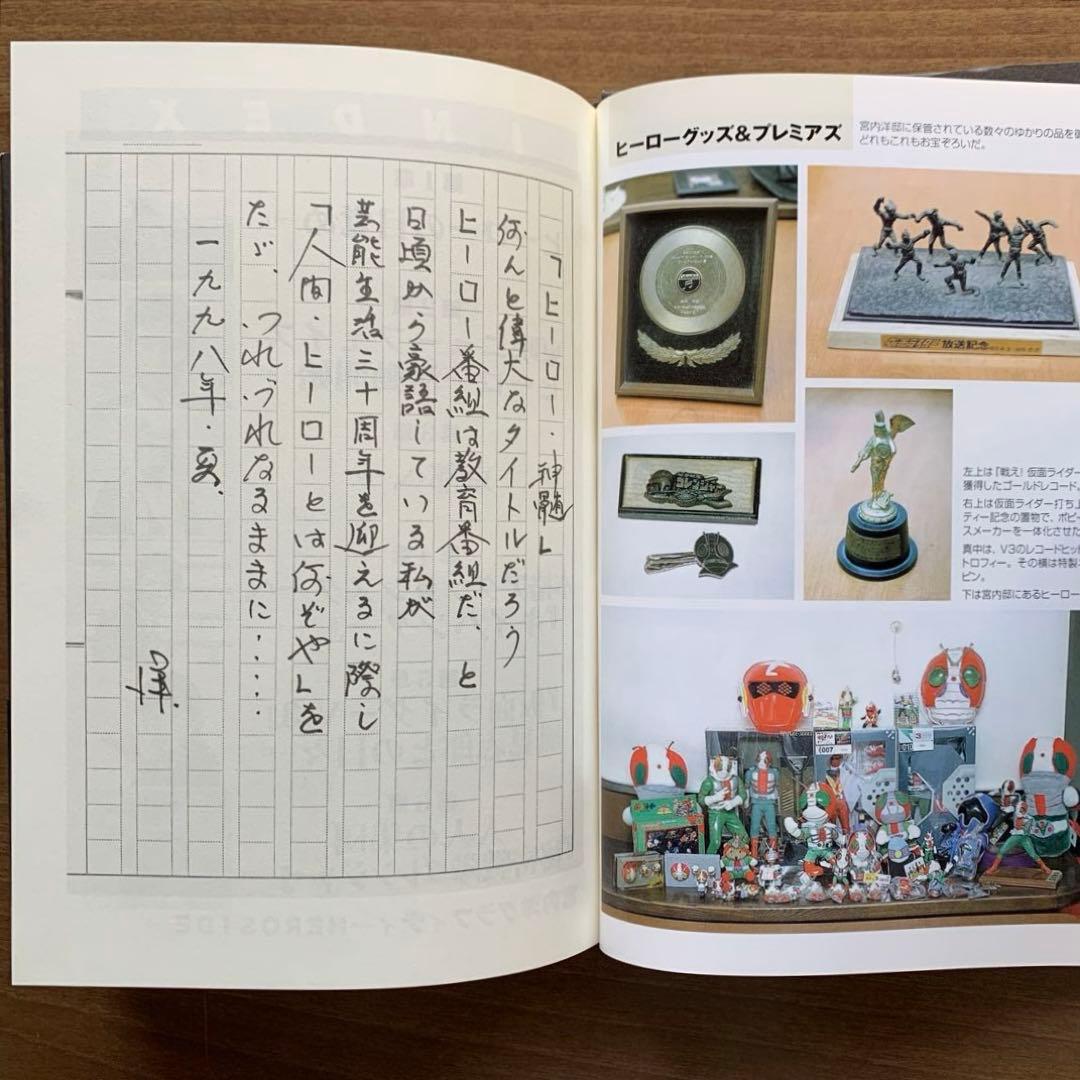 「ヒーロー・神髄」
何んと偉大なタイトルだろう
ヒーロー番組は教育番組だ、と
日頃から豪語している私が
芸能生活三十周年を迎えるに際し
「人間・ヒーローとは何ぞや」を
ただ、つれづれなるままに・・・・・
一九九八年・夏、
洋
ヒーローグッズ&プレミアズ
宮内洋邸に保管されている数々のゆかりの品を
どれもこれもお宝ぞろいだ。
放送記念
ゴレンジャー
左上は「戦え! 仮面ライダー
獲得したゴールドレコード。
右上は仮面ライダー打ち上
ティー記念の置物で、ポピー
スメーカーを一体化させた
真中は、V3のレコードヒット
トロフィー。その横は特製
ピン。
下は宮内邸にあるヒーロー